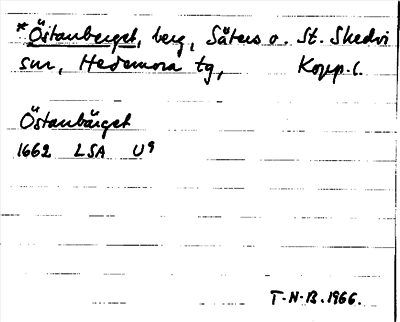 *Östanberget, berg, Säters o. St. Skedvi
snr, Hedemora tg, Kopp. l.
Östanbärget
1662 LSA U9
T.N.B. 1966.